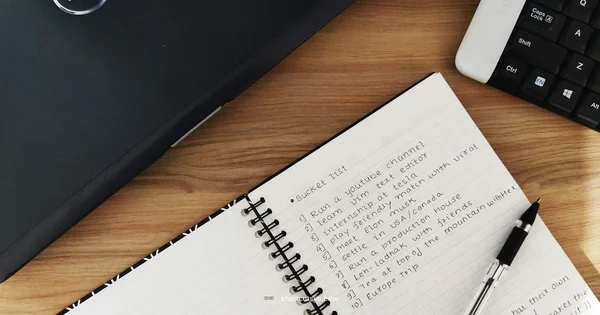 • Bucket List
1] Run a youtube channel
2] Learn vim text editor
3] internship at tesla
4] Play friendly match with viral
5] Meet Elon musk
6] settle in USA/canada
7] Run a production House
8] Leh-ladhak with friends
9] Tea at top of the mountain with Her
10] Europe Trip
has their own
makes the
Caps Lock
A
Shift
Z
Ctrl
Alt